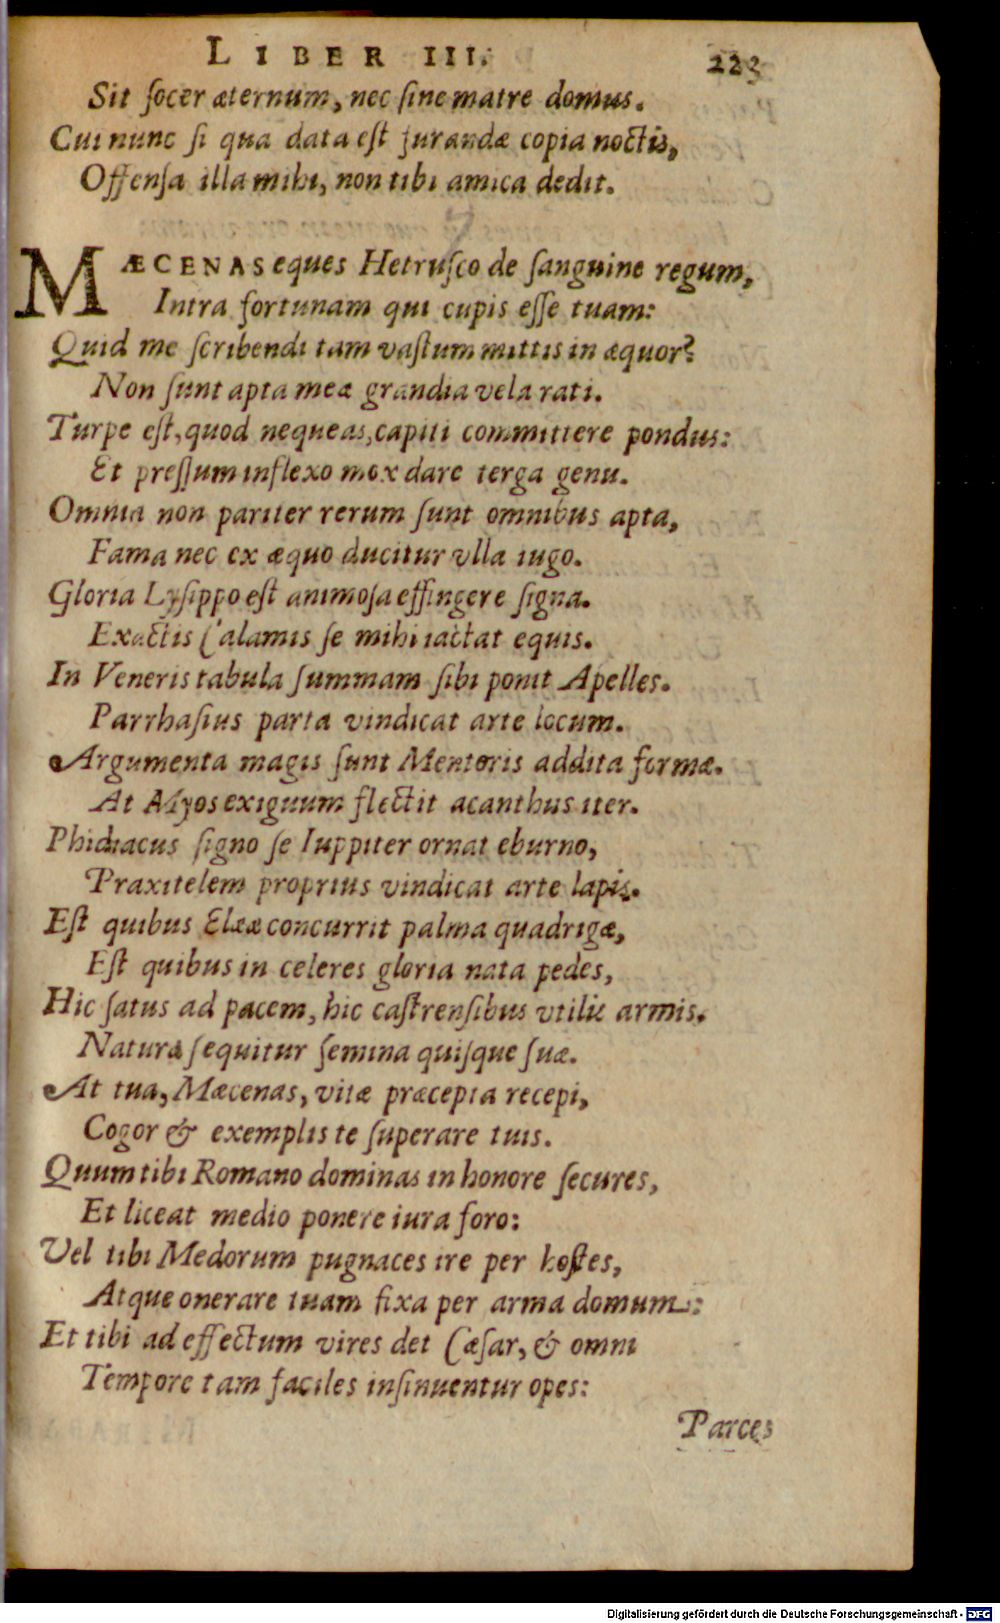 LIBER III. 223
Sit ſocer æternum, nec ſine matre domus.
Cui nunc ſi qua data eſt jurandæ copia noctis,
Offenſa illa mihi, non tibi amica dedit.
MÆCENAS eques Hetruſco de ſanguine regum,
Intra fortunam qui cupis eſſe tuam:
Quid me ſcribendi tam vaſtum mittis in æquor?
Non ſunt apta meæ grandia vela rati.
Turpe eſt, quod nequeas, capiti committere pondus:
Et preſſum inflexo mox dare terga genu.
Omnia non pariter rerum ſunt omnibus apta,
Fama nec ex æquo ducitur vlla iugo.
Gloria Lyſippo eſt animoſa effingere ſigna.
Exactis Calamis ſe mihi iactat equis.
In Veneris tabula ſummam ſibi ponit Apelles.
Parrhaſius parta vindicat arte locum.
Argumenta magis ſunt Mentoris addita formæ.
At Myos exiguum flectit acanthus iter.
Phidiacus ſigno ſe Iuppiter ornat eburno,
Praxitelem proprius vindicat arte lapis.
Eſt quibus Eleæ concurrit palma quadrigæ,
Eſt quibus in celeres gloria nata pedes,
Hic ſatus ad pacem, hic caſtrenſibus vtilis armis.
Naturæ ſequitur ſemina quiſque ſuæ.
At tua, Mæcenas, vitæ præcepta recepi,
Cogor & exemplis te ſuperare tuis.
Quum tibi Romano dominas in honore ſecures,
Et liceat medio ponere iura foro:
Vel tibi Medorum pugnaces ire per hoſtes,
Atque onerare tuam fixa per arma domum:
Et tibi ad effectum vires det Cæſar, & omni
Tempore tam faciles inſinuentur opes:
Parces
Digitalisierung gefördert durch die Deutsche Forschungsgemeinschaft - DFG